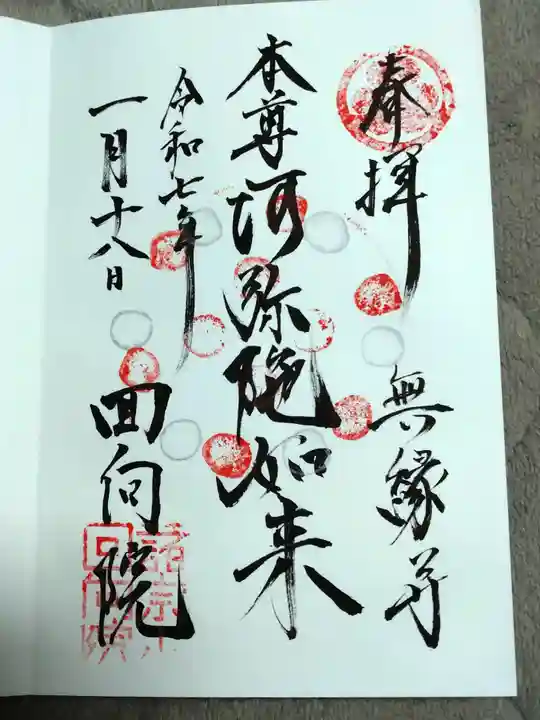 奉拝
無縁寺
本尊阿弥陀如来
令和七年
一月十八日
回向院